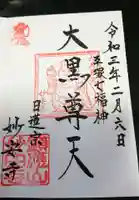 令和三年二月六日
七福神
大黒尊天
日蓮宗
妙
寺